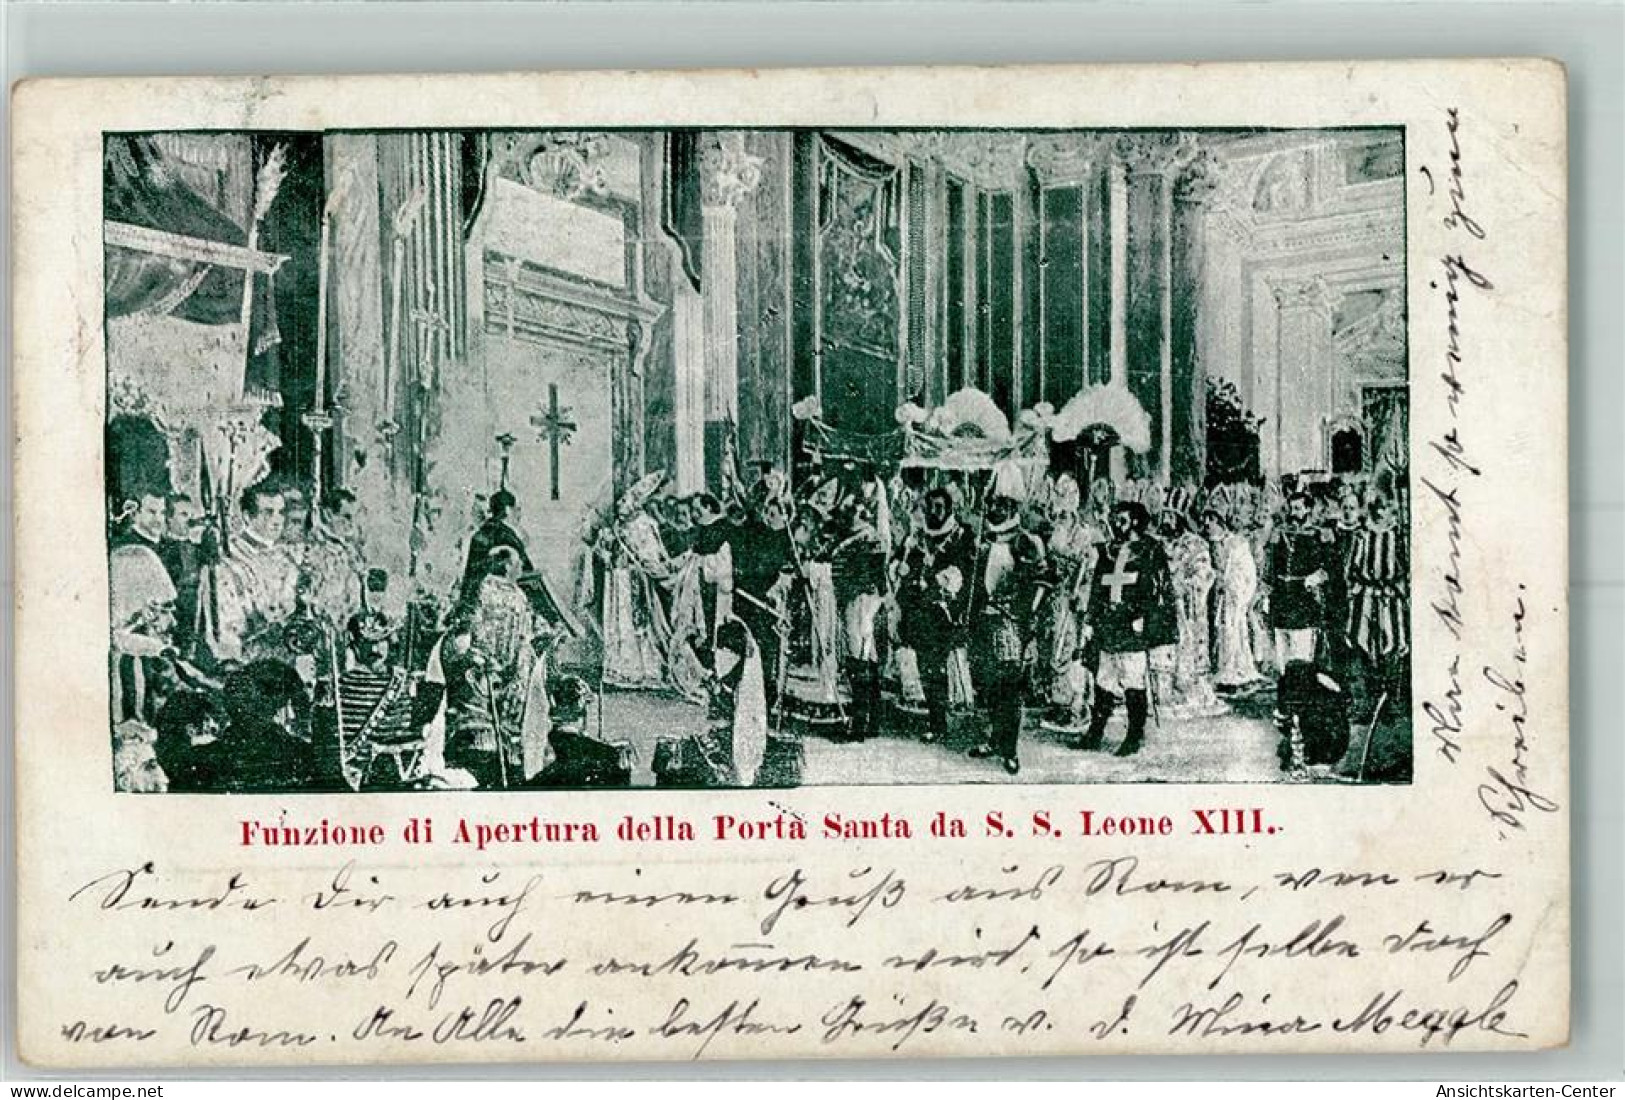 Funzione di Apertura della Porta Santa da S. S. Leone XIII.
Sende Dir auch einen Gruß aus Rom, wen er
auch etwas später ankom̅en wird, so ist selbe doch
von Rom. An Alle die besten Grüße v. d. Mina Meggle
Man kommt so wenig zum
Schreiben.
Ansichtskarten-Center